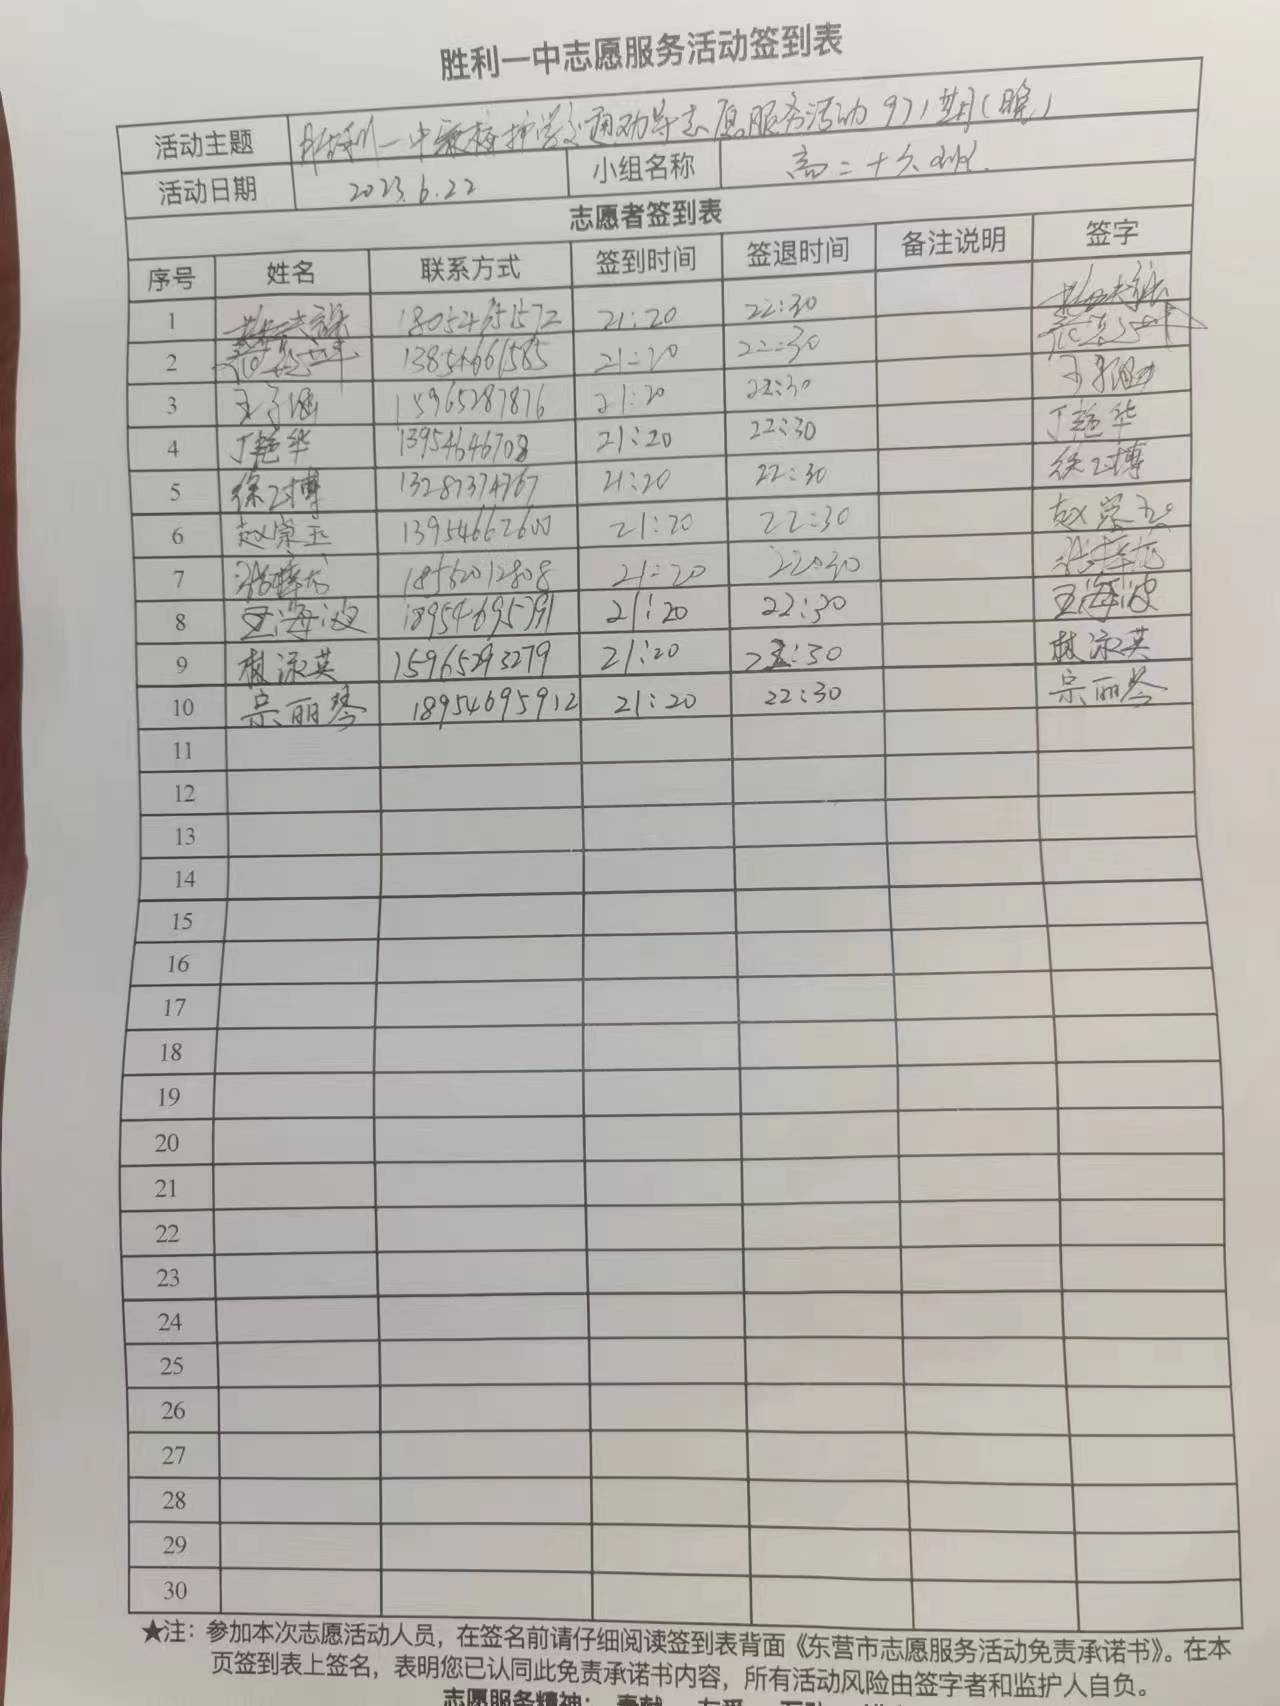 胜利一中志愿服务活动签到表
活动主题 胜利一中 护学交通劝导志愿服务活动971期(晚)
活动日期 2023.6.22 小组名称 高二十六班
志愿者签到表
序号 姓名 联系方式 签到时间 签退时间 备注说明 签字
1 18054651572 21:20 22:30
2 13854661585 21:20 22:30
3 王子涵 15965287876 21:20 22:30 王子涵
4 丁艳华 13954646708 21:20 22:30 丁艳华
5 徐 博 13287374767 21:20 22:30 徐 博
6 赵崇玉 13954662600 21:20 22:30 赵崇玉
7 18562012808 21:20 22:30
8 王海波 18954695791 21:20 22:30 王海波
9 林泳英 15965293279 21:20 22:30 林泳英
10 宗丽琴 18954695912 21:20 22:30 宗丽琴
11
12
13
14
15
16
17
18
19
20
21
22
23
24
25
26
27
28
29
30
★注：参加本次志愿活动人员，在签名前请仔细阅读签到表背面《东营市志愿服务活动免责承诺书》。在本
页签到表上签名，表明您已认同此免责承诺书内容，所有活动风险由签字者和监护人自负。
志愿服务精神：